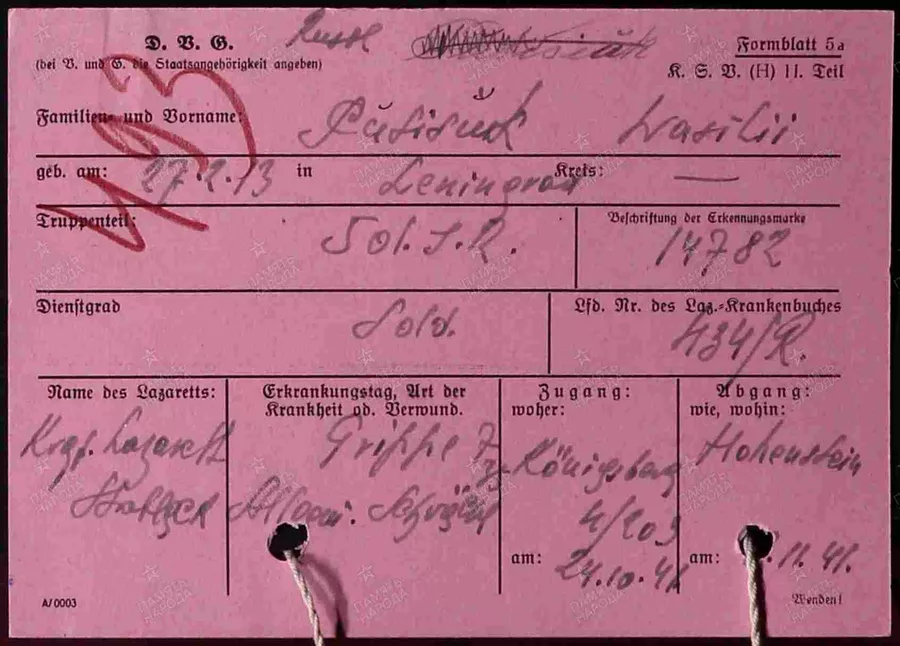 D. V. G. Russe
(bei V. und G. die Staatsangehörigkeit angeben)
Formblatt 5a
K. S. V. (H) 11. Teil
493
Familien- und Vorname: Wasilii
geb. am: 27.2.13 in Leningrad Kreis: —
Truppenteil: Sol. J.R.
Beschriftung der Erkennungsmarke
14782
Dienstgrad Sold.
Lfd. Nr. des Laz.-Krankenbuches
434/R.
Name des Lazaretts:
Krgf. Lazarett
Erkrankungstag, Art der
Krankheit od. Verwund.
Grippe
Allgem. Schwäche
Zugang:
woher:
Königsberg
4/203
am: 24.10.41
Abgang:
wie, wohin:
Hohenstein
am: .11.41.
A/0003
Wenden!
ПАМЯТЬ
НАРОДА